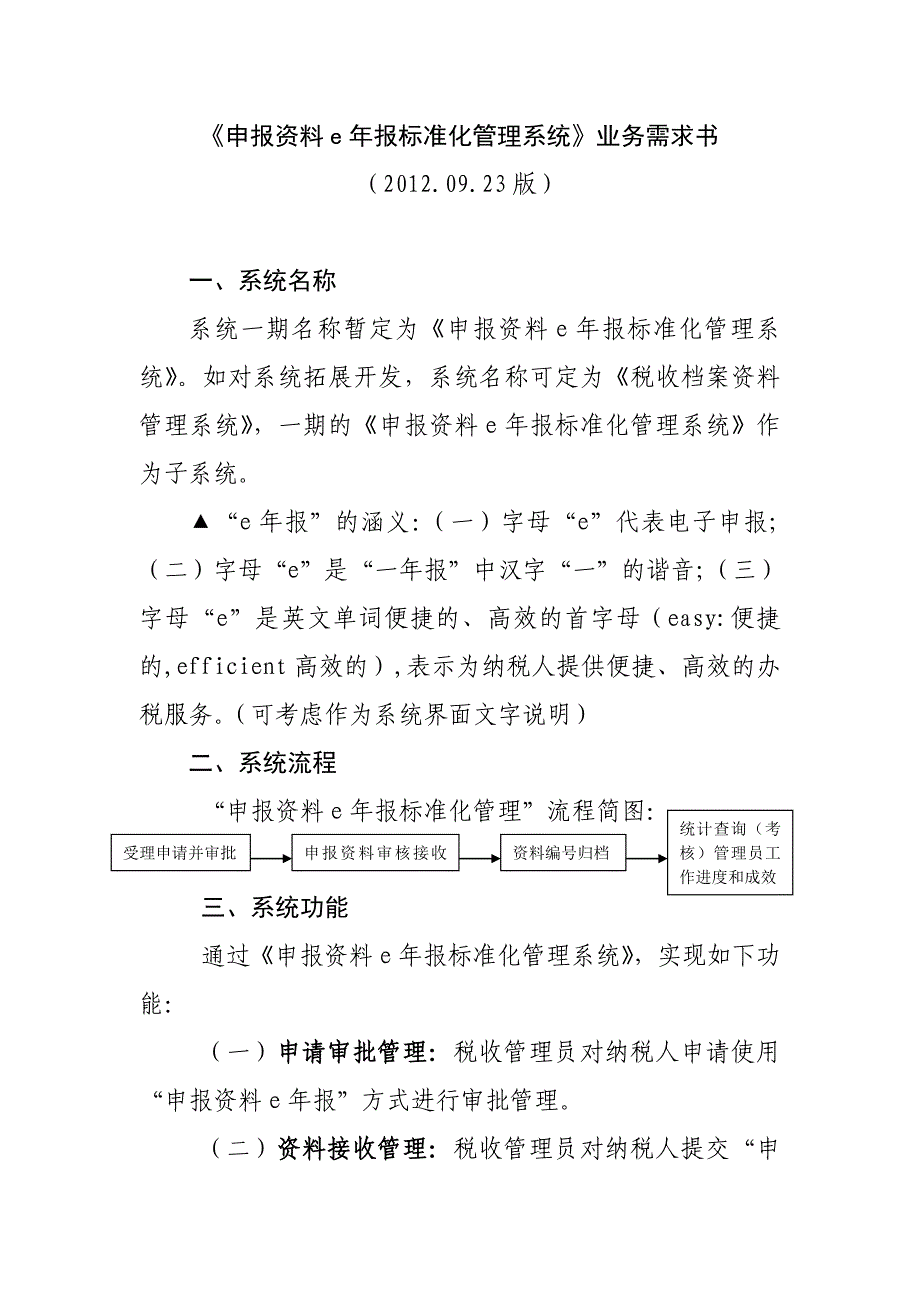 《申报资料e年报标准化管理系统》业务需求书
（2012.09.23版）
一、系统名称
系统一期名称暂定为《申报资料e年报标准化管理系
统》。如对系统拓展开发，系统名称可定为《税收档案资料
管理系统》，一期的《申报资料e年报标准化管理系统》作
为子系统。
▲“e年报”的涵义：（一）字母“e”代表电子申报；
（二）字母“e”是“一年报”中汉字“一”的谐音；（三）
字母“e”是英文单词便捷的、高效的首字母（easy：便捷
的,efficient高效的）,表示为纳税人提供便捷、高效的办
税服务。（可考虑作为系统界面文字说明）
二、系统流程
“申报资料e年报标准化管理”流程简图：
受理申请并审批
申报资料审核接收
资料编号归档
统计查询（考
核）管理员工
作进度和成效
三、系统功能
通过《申报资料e年报标准化管理系统》，实现如下功
能：
（一）申请审批管理：税收管理员对纳税人申请使用
“申报资料e年报”方式进行审批管理。
（二）资料接收管理：税收管理员对纳税人提交“申